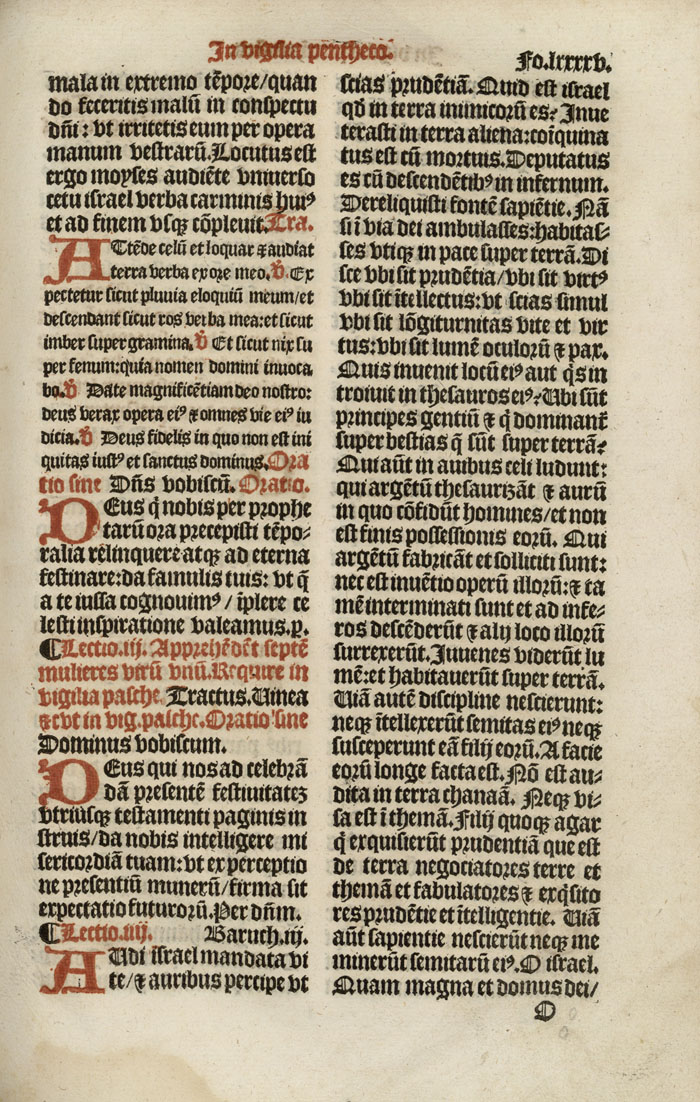 In vigilia pentheco.
Fo.lxxxxv.
mala in extremo tēpore/quan
do feceritis malū in conspectu
dn̄i: vt irritetis eum per opera
manum vestrarū.Locutus est
ergo moyses audiēte vniuerso
cetu israel verba carminis huiꝰ
et ad finem vsqꝫ cōpleuit.Tra.
ATtēde celū et loquar ⁊ audiat
terra verba ex ore meo.℣ Ex
pectetur sicut pluuia eloquiū meum/et
descendant sicut ros verba mea:et sicut
imber super gramina.℣ Et sicut nix su
per fenum:quia nomen domini inuoca
bo.℣ Date magnificētiam deo nostro:
deus verax opera eiꝰ ⁊ omnes vie eiꝰ iu
dicia.℣ Deus fidelis in quo non est ini
quitas iustꝰ et sanctus dominus.Ora
tio sine Dn̄s vobiscū. Oratio.
DEus q̄ nobis per prophe
tarū ora precepisti tēpo⸗
ralia relinquere atqꝫ ad eterna
festinare:da famulis tuis: vt q̄
a te iussa cognouimꝰ/ īplere ce
lesti inspiratione valeamus.p.
¶Lectio.iij. Apprehēdēt septē
mulieres virū vnū.Require in
vigilia pasche. Tractus.Uinea
⁊c̄ vt in vig.pasche.Oratio sine
Dominus vobiscum.
DEus qui nos ad celebrā
dā presentē festiuitatez
vtriusqꝫ testamenti paginis in
struis/da nobis intelligere mi
sericordiā tuam:vt ex perceptio
ne presentiū munerū/firma sit
expectatio futurorū.Per dn̄m.
¶Lectio.iiij. Baruch.iij.
AUdi israel mandata vi
te/⁊ auribus percipe vt
scias prudētiā. Quid est israel
qd̄ in terra inimicorū es? Inue
terasti in terra aliena:coīquina
tus est cū mortuis.Deputatus
es cū descendētibꝰ in infernum.
Dereliquisti fontē sapiētie. Nā
si ī via dei ambulasses:habitas⸗
ses vtiqꝫ in pace super terrā.Di
sce vbi sit prudētia/vbi sit virtꝰ
vbi sit ītellectus:vt scias simul
vbi sit lōgiturnitas vite et vir
tus:vbi sit lumē oculorū ⁊ pax.
Quis inuenit locū eiꝰ aut q̄s in
troiuit in thesauros eiꝰ? Ubi sūt
principes gentiū ⁊ q̄ dominant̄
super bestias q̄ sūt super terrā?
Qui aūt in auibus celi ludunt:
qui argētū thesaurizāt ⁊ aurū
in quo cōfidūt homines/et non
est finis possessionis eorū. Qui
argētū fabricāt et solliciti sunt:
nec est inuētio operū illorū:⁊ ta
mē interminati sunt et ad infe⸗
ros descēderūt ⁊ alij loco illorū
surrexerūt.Iuuenes viderūt lu
mē:et habitauerūt super terrā.
Uiā autē discipline nescierunt:
neqꝫ ītellexerūt semitas eiꝰ neqꝫ
susceperunt eā filij eorū.A facie
eorū longe facta est. Nō est au⸗
dita in terra chanaā. Neqꝫ vi⸗
sa est ī themā.Filij quoqꝫ agar
q̄ exquisierūt prudentiam que est
de terra negociatores terre et
themā et fabulatores ⁊ exq̄sito
res prudētie et ītelligentie. Uiā
aūt sapientie nescierūt neqꝫ me
minerūt semitarū eiꝰ.O israel.
Quam magna et domus dei/
O